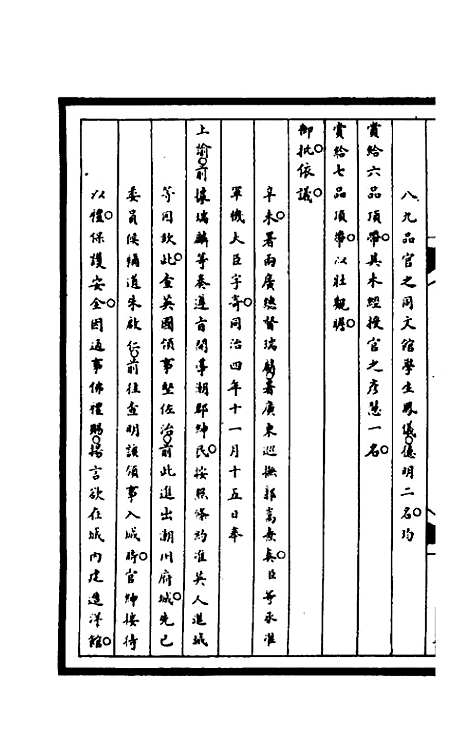 八九品官之同文館學生鳳儀。德明二名。均
賞給六品頂帶。其未經授官之彥慧一名。
賞給七品頂帶。以壯觀瞻。
御批依議。
辛未。署兩廣總督瑞麟。署廣東巡撫郭嵩燾奏。臣等承准
軍機大臣字寄。同治四年十一月十五日奉
上諭。前據瑞麟等奏遵旨開導潮郡紳民。按照條約准英人進城
等因欽此。查英國領事堅佐治。前此進出潮州府城。先已
委員候補道朱啟仁。前往查明該領事入城時。官紳接待
以禮。保護安全。因通事佛禮賜。揚言欲在城內建造洋館。